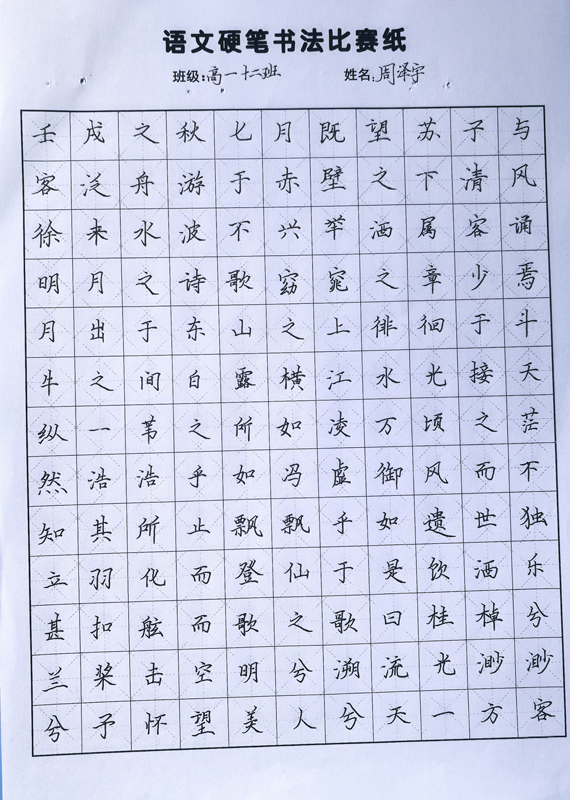 语文硬笔书法比赛纸
班级:高一十二班 姓名:周泽宇
壬戌之秋七月既望苏子与
客泛舟游于赤壁之下清风
徐来水波不兴举酒属客诵
明月之诗歌窈窕之章少焉
月出于东山之上徘徊于斗
牛之间白露横江水光接天
纵一苇之所如凌万顷之茫
然浩浩乎如冯虚御风而不
知其所止飘飘乎如遗世独
立羽化而登仙于是饮酒乐
甚扣舷而歌之歌曰桂棹兮
兰桨击空明兮溯流光渺渺
兮予怀望美人兮天一方客